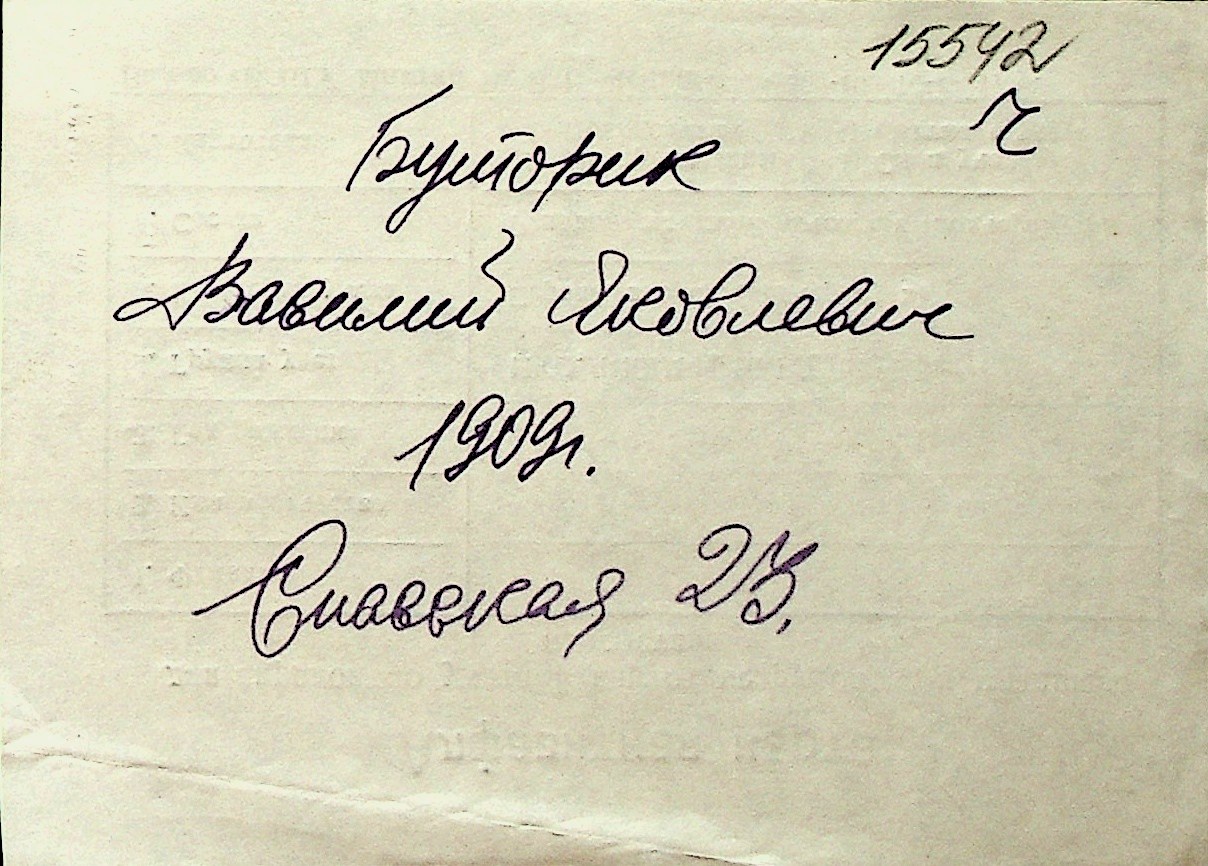 15542
ч
Буторик
Василий Яковлевич
1909г.
Спасская 23.